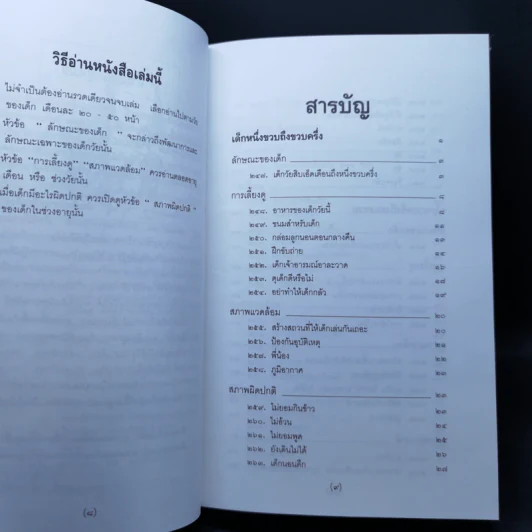 วิธีอ่านหนังสือเล่มนี้
ไม่จำเป็นต้องอ่านรวดเดียวจนจบเล่ม เลือกอ่านไปตามวัย
ของเด็ก เดือนละ ๒๐ - ๕๐ หน้า
หัวข้อ " ลักษณะของเด็ก " จะกล่าวถึงพัฒนาการและ
ลักษณะเฉพาะของเด็กวัยนั้น
หัวข้อ "การเลี้ยงดู" "สภาพแวดล้อม" ควรอ่านตลอดอายุ
เดือน หรือ ช่วงวัยนั้น
เมื่อเด็กมีอะไรผิดปกติ ควรเปิดดูหัวข้อ " สภาพผิดปกติ "
ของเด็กในช่วงอายุนั้น
(๘)
สารบัญ
เด็กหนึ่งขวบถึงขวบครึ่ง ๑
ลักษณะของเด็ก ๑
๒๔๗. เด็กวัยสิบเอ็ดเดือนถึงหนึ่งขวบครึ่ง ๑
การเลี้ยงดู ๘
๒๔๘. อาหารของเด็กวัยนี้ ๘
๒๔๙. ขนมสำหรับเด็ก ๑๑
๒๕๐. กล่อมลูกนอนตอนกลางคืน ๑๓
๒๕๑. ฝึกขับถ่าย ๑๕
๒๕๒. เด็กเจ้าอารมณ์อาละวาด ๑๖
๒๕๓. ดุเด็กดีหรือไม่ ๑๗
๒๕๔. อย่าทำให้เด็กกลัว ๑๙
สภาพแวดล้อม ๒๐
๒๕๕. สร้างสถานที่ให้เด็กเล่นกันเถอะ ๒๐
๒๕๖. ป้องกันอุบัติเหตุ ๒๑
๒๕๗. พี่น้อง ๒๒
๒๕๘. ภูมิอากาศ ๒๓
สภาพผิดปกติ ๒๓
๒๕๙. ไม่ยอมกินข้าว ๒๓
๒๖๐. ไม่อ้วน ๒๔
๒๖๑. ไม่ยอมพูด ๒๕
๒๖๒. ยังเดินไม่ได้ ๒๖
๒๖๓. เด็กนอนดึก ๒๗
(๙)